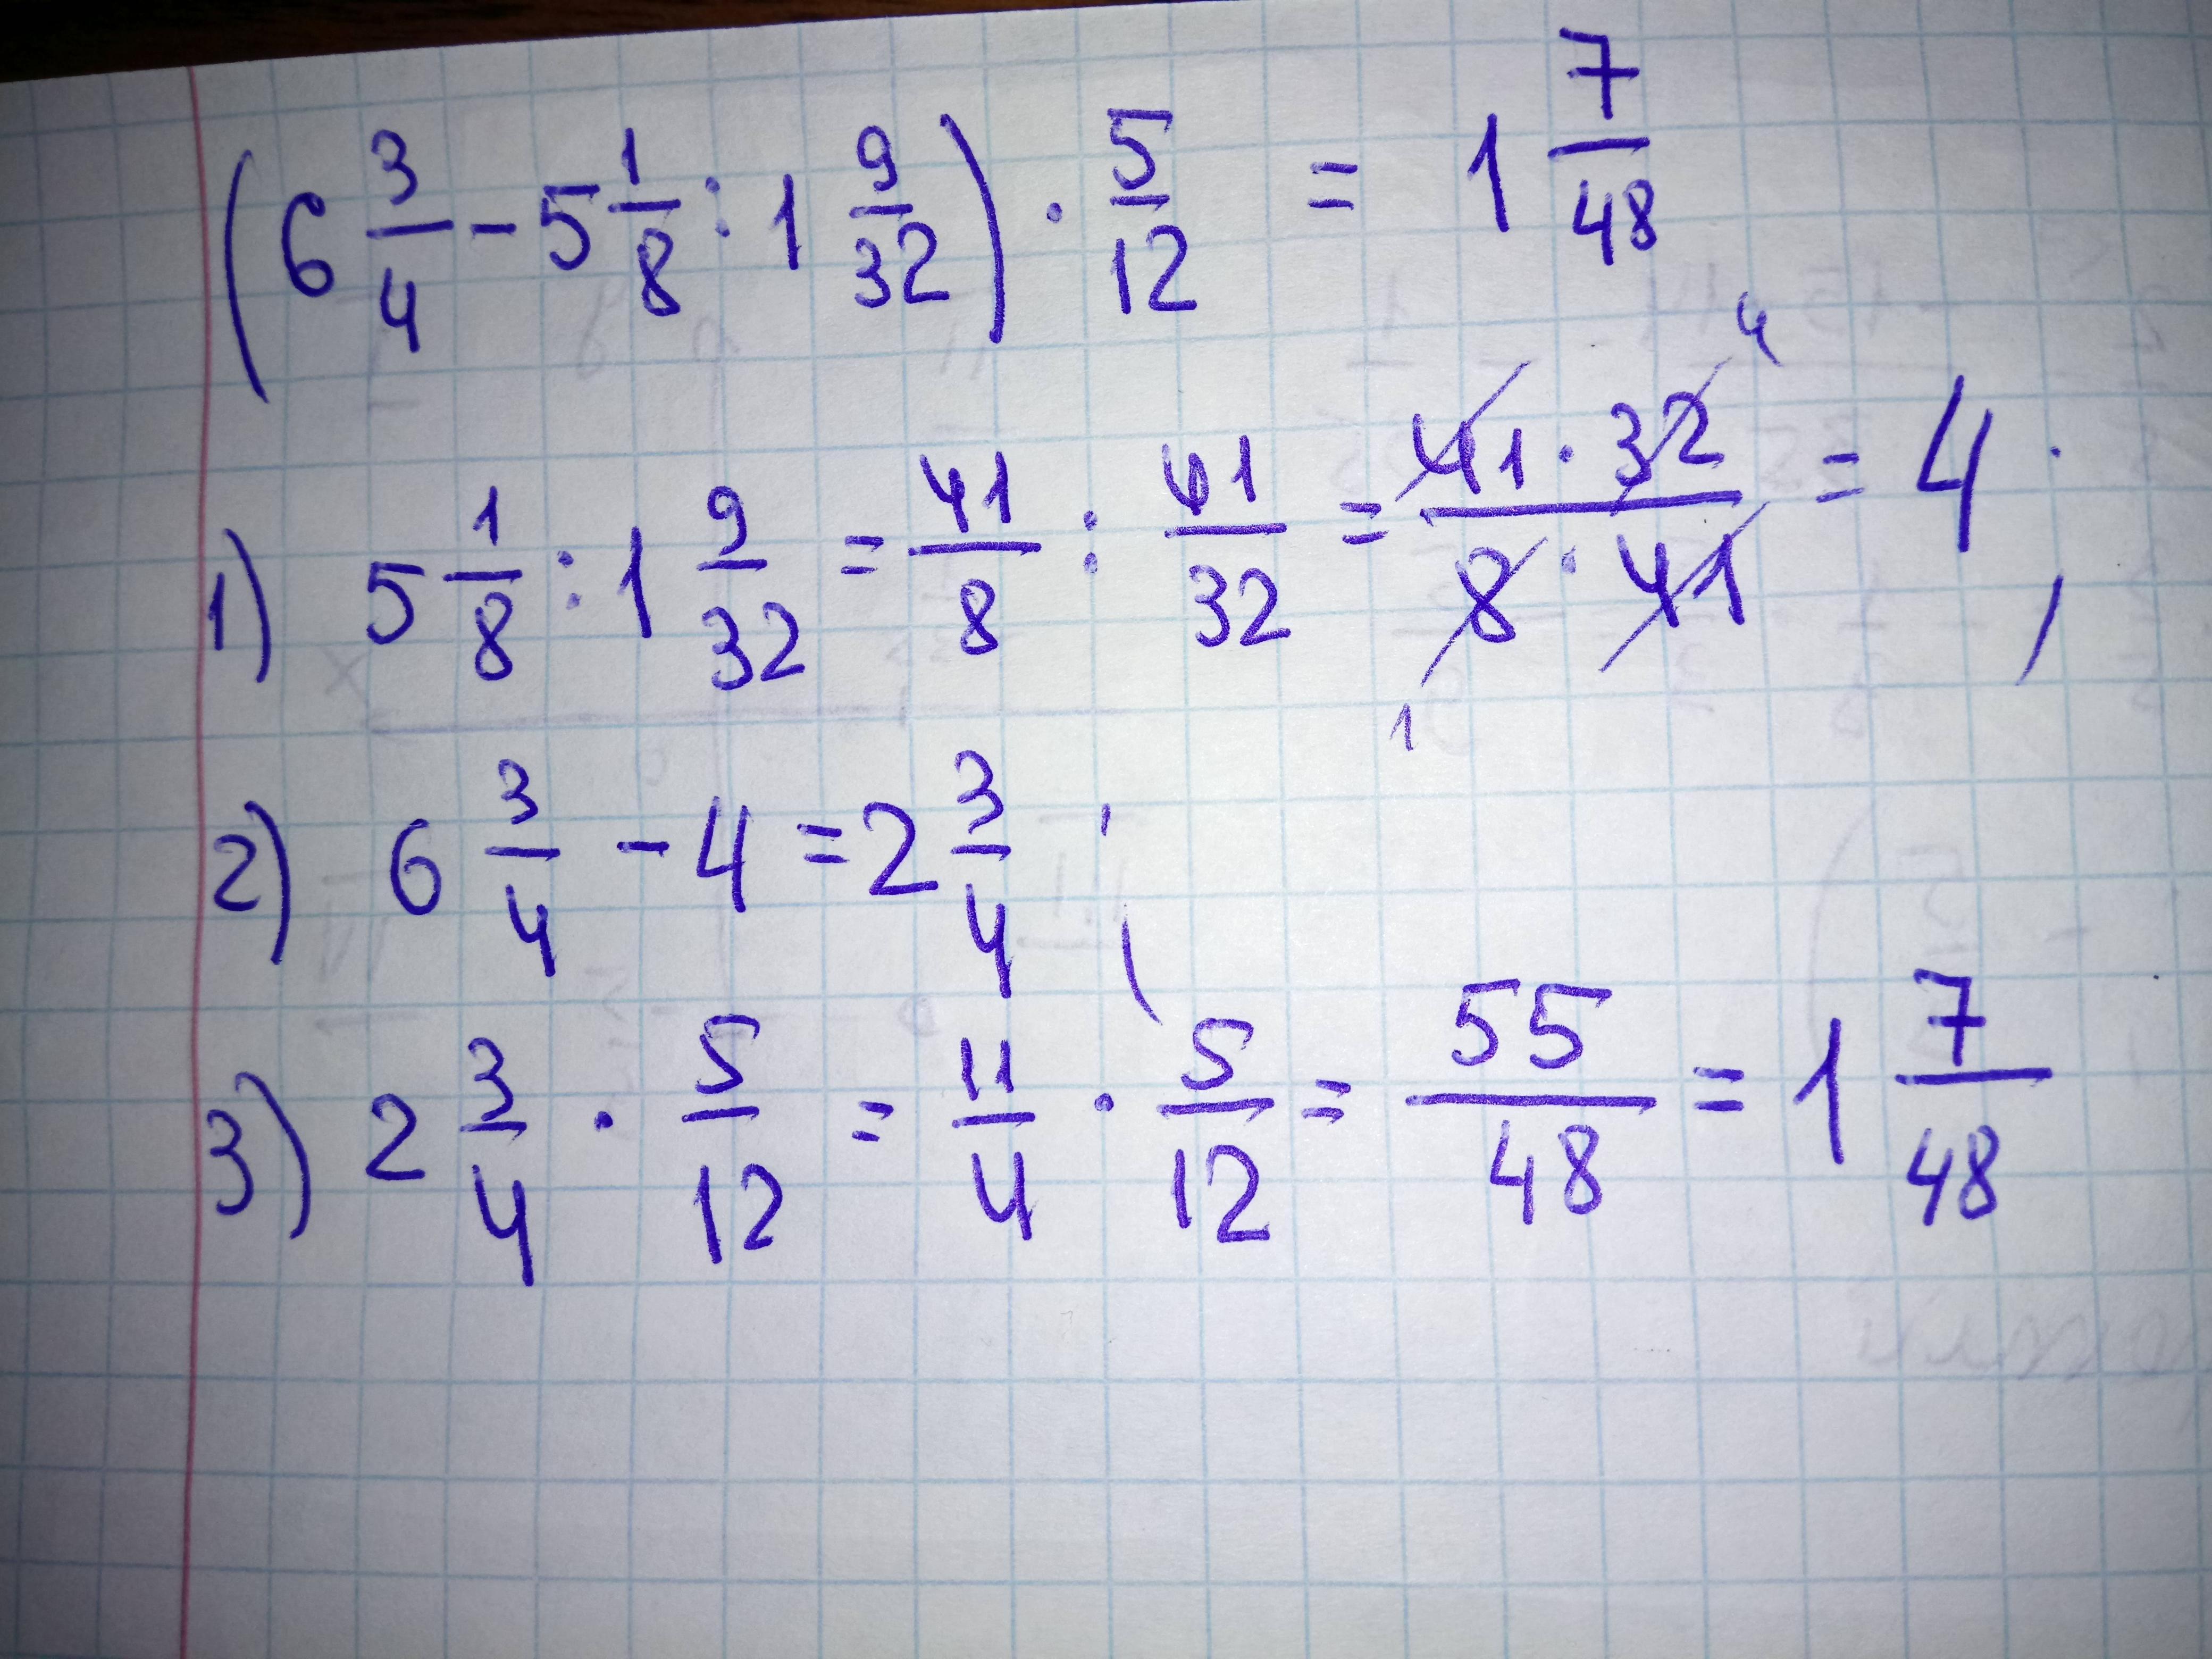 (6 3/4 - 5 1/8 : 1 9/32) · 5/12 = 1 7/48
1) 5 1/8 : 1 9/32 = 41/8 : 41/32 = 41 · 32 4 / 8 · 41 1 = 4 ;
2) 6 3/4 - 4 = 2 3/4 ;
3) 2 3/4 · 5/12 = 11/4 · 5/12 = 55/48 = 1 7/48